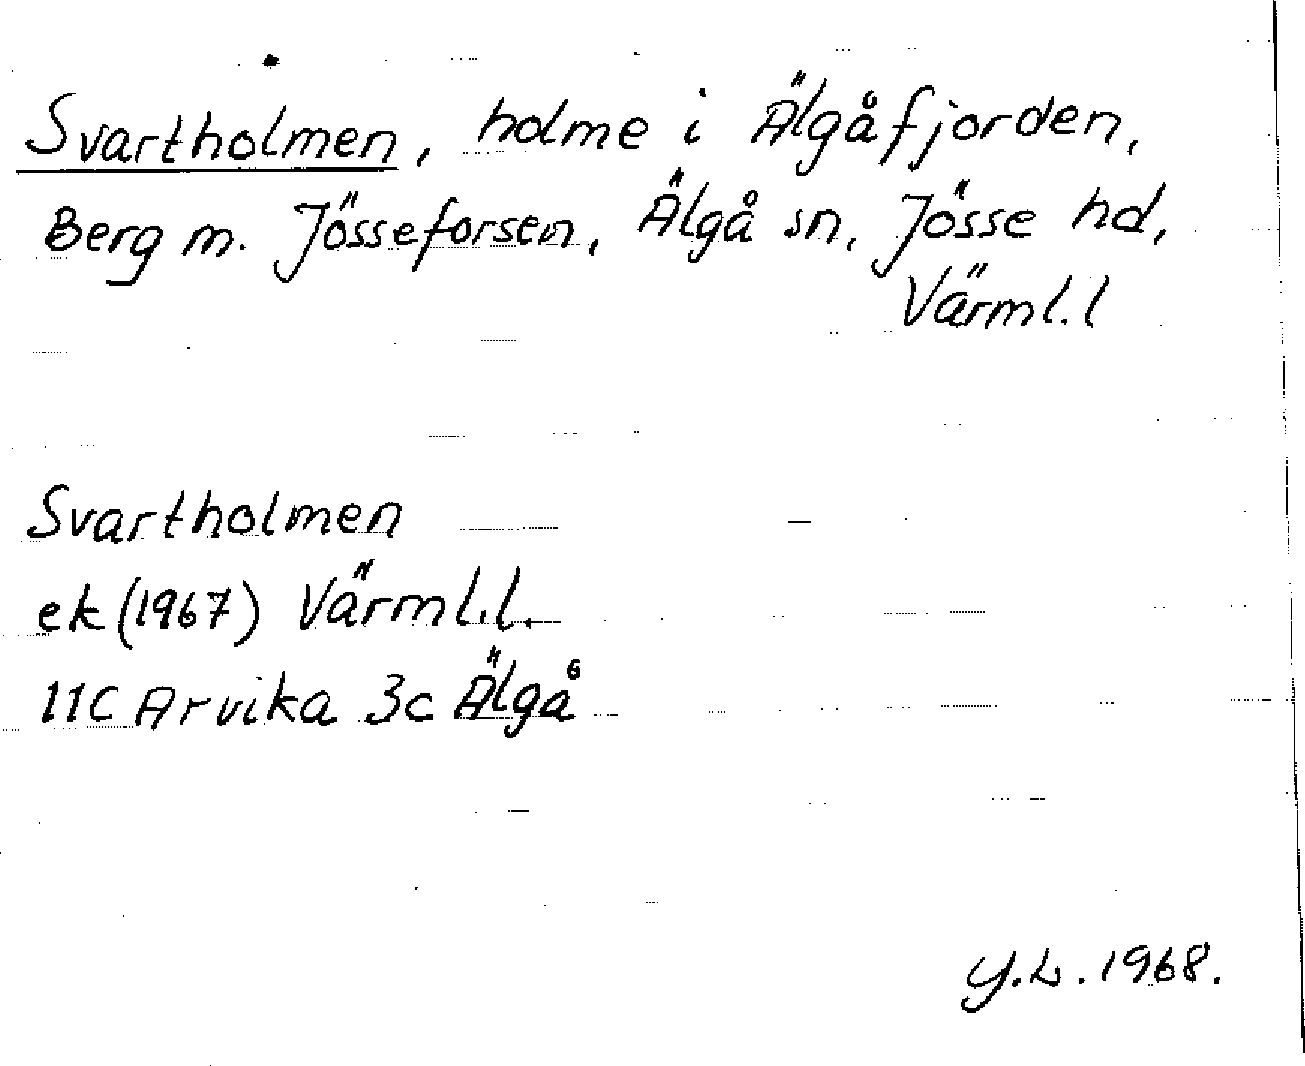 Svartholmen, holme i Älgåfjorden,
Berg m. Jösseforsen, Älgå sn, Jösse hd,
Värml. l
Svartholmen
ek (1967) Värml. l.
11C Arvika 3c Älgå
Y.L. 1968.